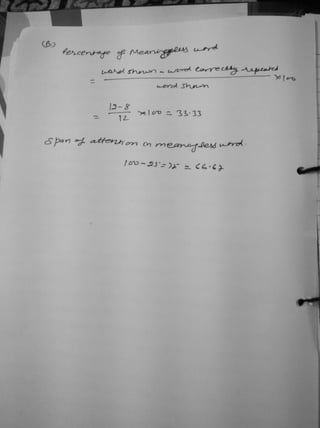 (B)
Percentage of Meaningless word
= word shown - word correctly repeated / word shown × 100
= 12-8 / 12 × 100 = 33.33
Span of attention in meaningless word.
100 - 25 = 75 = 66.67